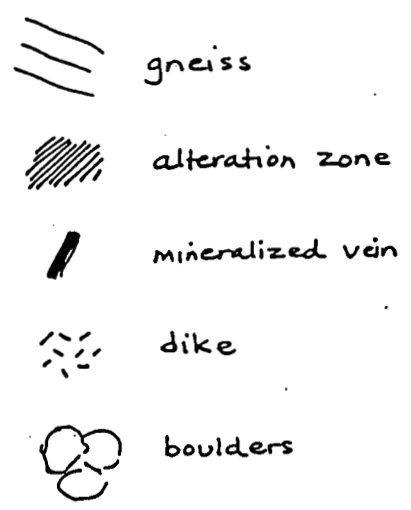 gneiss
alteration zone
mineralized vein
dike
boulders